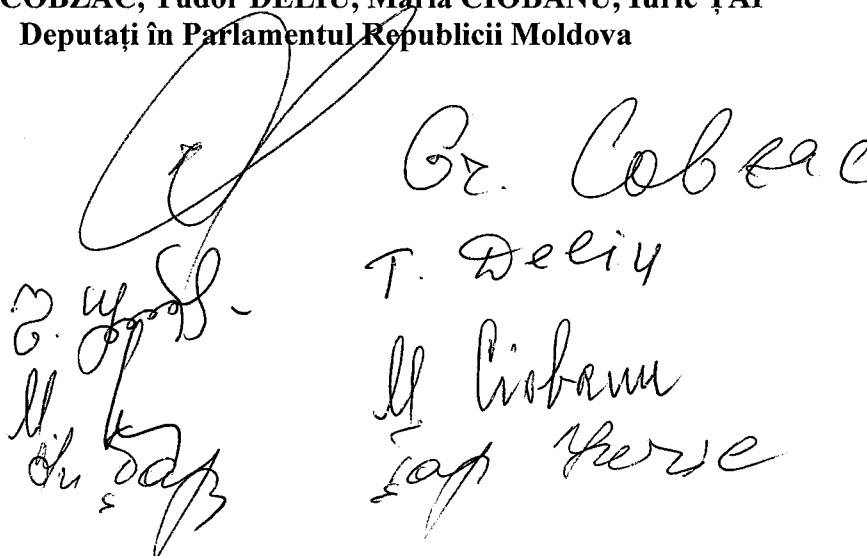 COBZAC, Tudor DELIU, Maria CIOBANU, Iurie ȚAP
Deputați în Parlamentul Republicii Moldova
Gr. Cobzac
T. Deliu
M Ciobanu
Țap Iurie